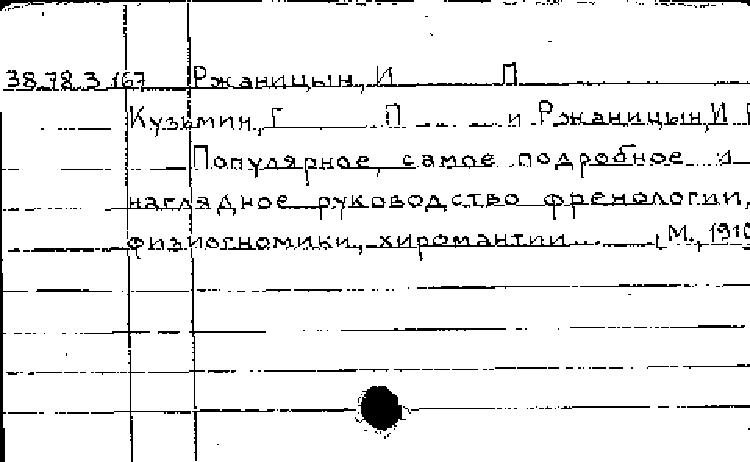 38.78.3.167 Ржаницын, И П
Кузьмин, Г П и Ржаницын, И
Популярное, самое подробное и
наглядное руководство френологии,
физиогномики, хиромантии ... М., 1910